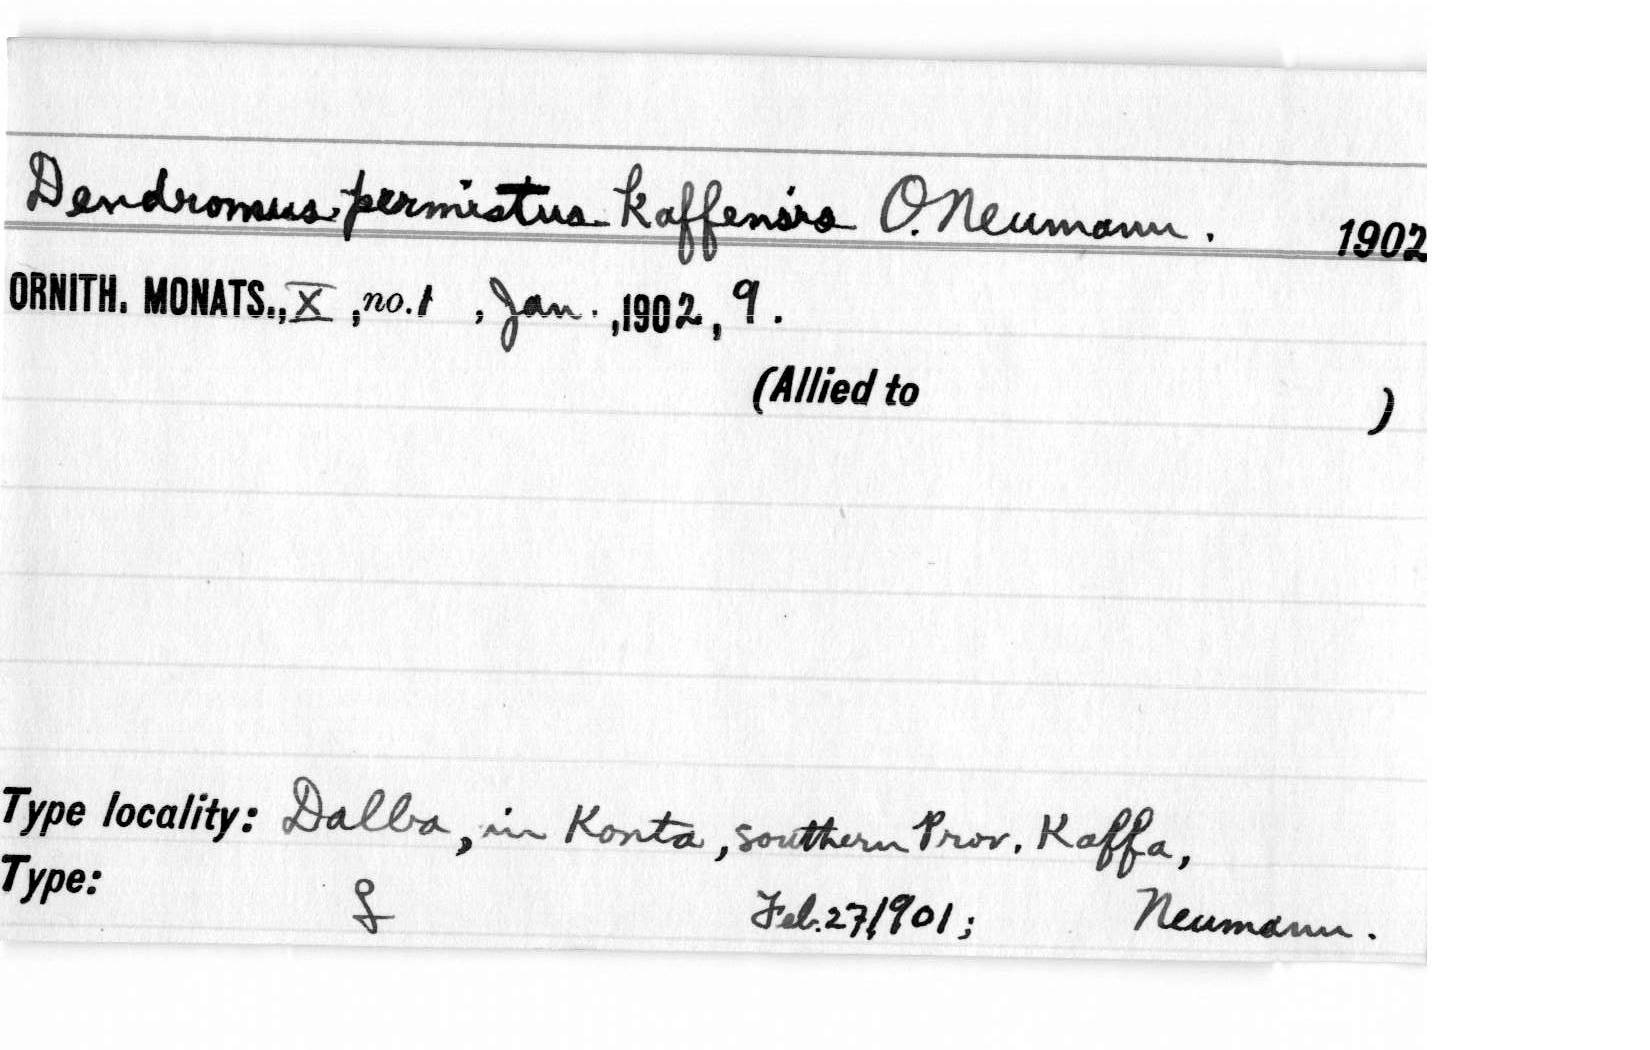 Dendromus permistus kaffensis O. Neumann. 1902
ORNITH. MONATS., X, no. 1, Jan., 1902, 9.
(Allied to )
Type locality: Dalba, in Konta, southern Prov. Kaffa,
Type: ♀ Feb. 27, 1901; Neumann.